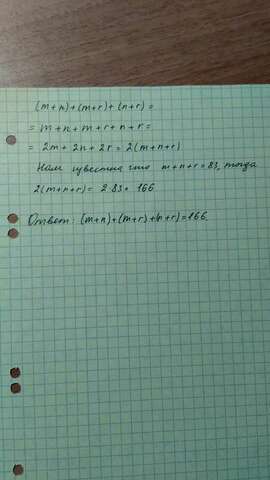 (m+n)+(m+r)+(n+r)=
= m+n+m+r+n+r=
= 2m+2n+2r=2(m+n+r)
Нам известна что m+n+r=83, тогда
2(m+n+r)= 2·83= 166
Ответ: (m+n)+(m+r)+(n+r)=166